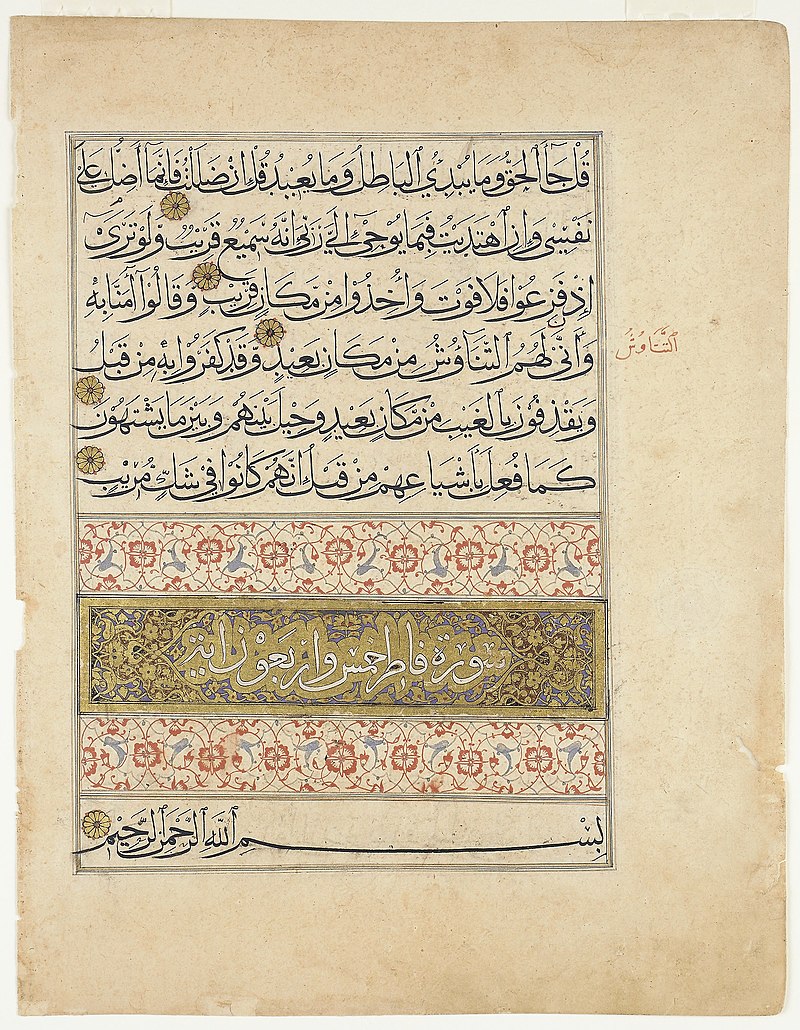 قُلْ جَآءَ الْحَقُّ وَمَا يُبْدِئُ الْبَاطِلُ وَمَا يُعِيْدُ قُلْ اِنْ ضَلَلْتُ فَاِنَّمَآ اَضِلُّ عَلٰى
نَفْسِىْ وَاِنِ اهْتَدَيْتُ فَبِمَا يُوْحِىْ اِلَيَّ رَبِّىْ اِنَّهُ سَمِيْعٌ قَرِيْبٌ وَّلَوْ تَرٰىٓ
اِذْ فَزِعُوْا فَلَا فَوْتَ وَاُخِذُوْا مِنْ مَّكَانٍ قَرِيْبٍ وَّقَالُوْٓا اٰمَنَّا بِهٖ
وَاَنّٰى لَهُمُ التَّنَاؤُشُ مِنْ مَكَانٍ بَعِيْدٍ وَّقَدْ كَفَرُوْا بِهٖ مِنْ قَبْلُ
التَّنَاوُشُ
وَيَقْذِفُوْنَ بِالْغَيْبِ مِنْ مَّكَانٍ بَعِيْدٍ وَحِيْلَ بَيْنَهُمْ وَبَيْنَ مَا يَشْتَهُوْنَ
كَمَا فُعِلَ بِاَشْيَاعِهِمْ مِنْ قَبْلُ اِنَّهُمْ كَانُوْا فِىْ شَكٍّ مُّرِيْبٍ
سورة فاطر خمس واربعون اية
بِسْمِ اللّٰهِ الرَّحْمٰنِ الرَّحِيْمِ